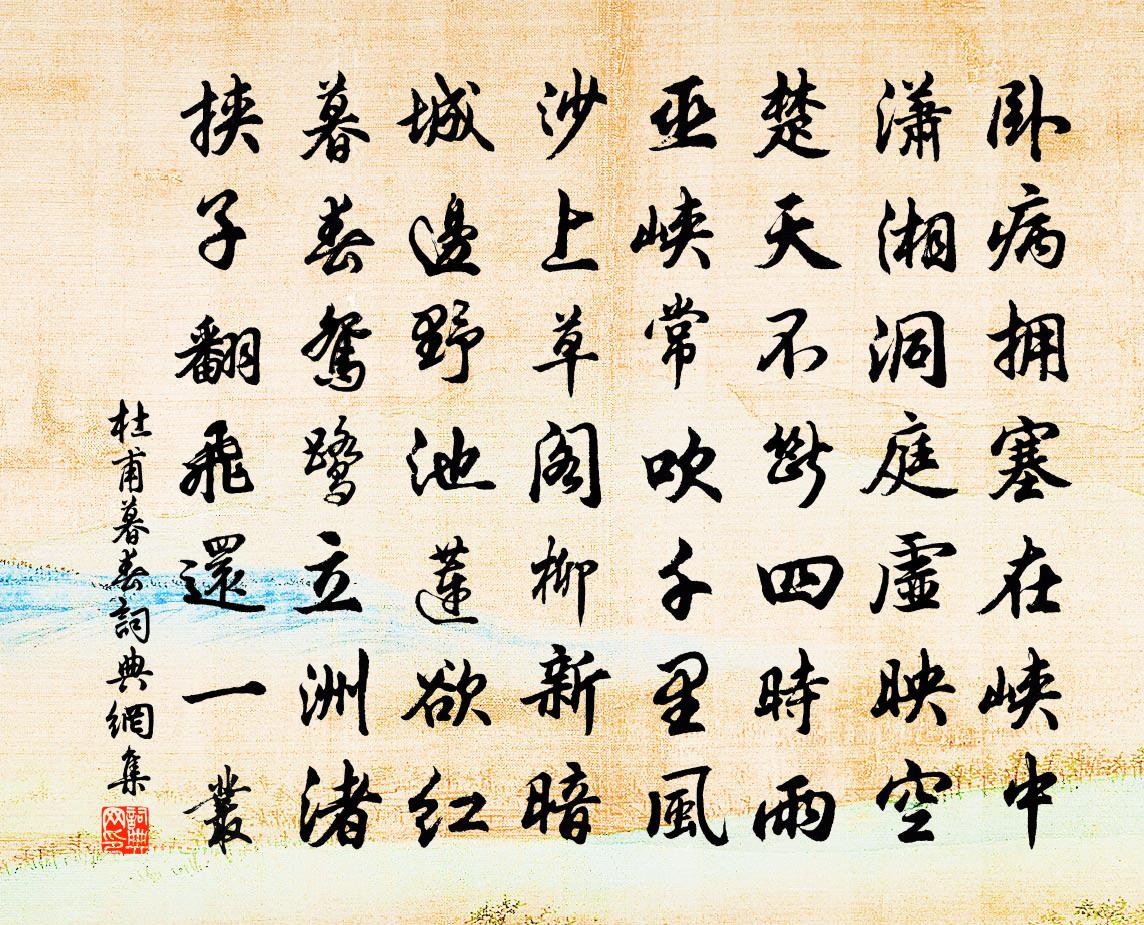 卧病拥塞在峡中
瀟湘洞庭虛映空
楚天不斷四時雨
巫峡常吹千里風
沙上草阁柳新暗
城邊野池蓮欲红
暮春鴛鹭立洲渚
挟子翻飛還一叢
杜甫暮春詞典網集